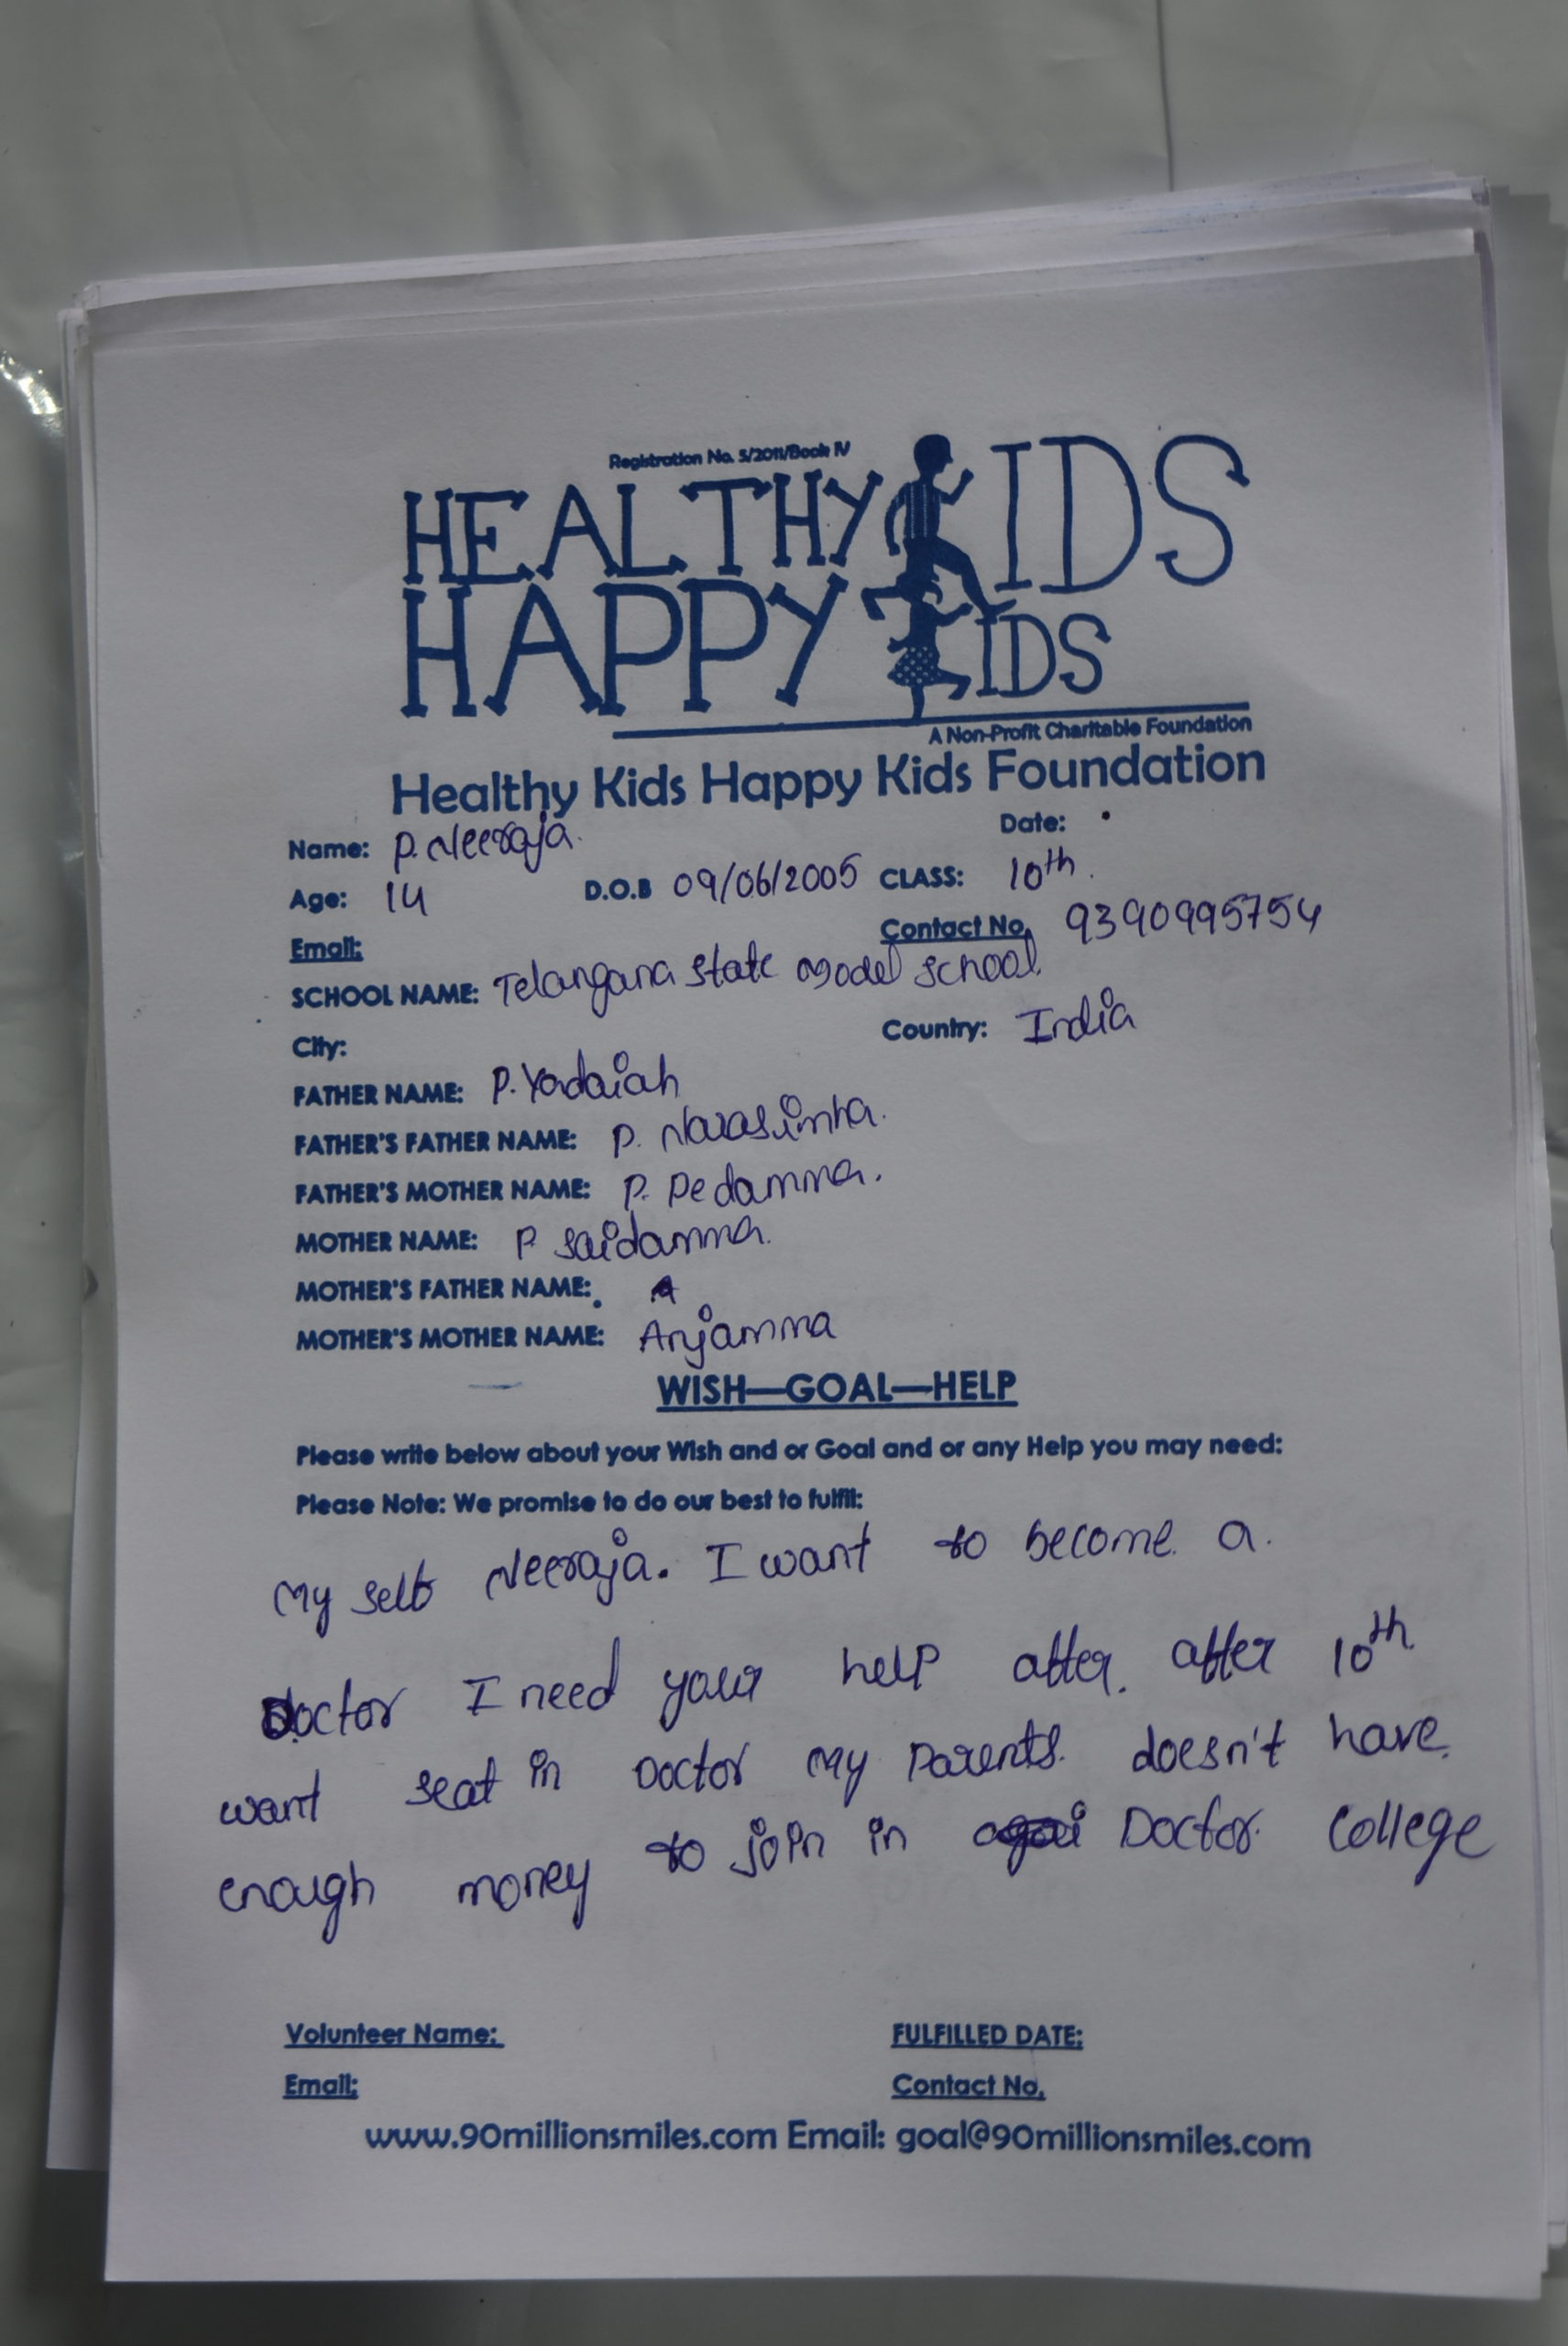 Registration No. 5/2011/Book IV
HEALTHY KIDS
HAPPY KIDS
A Non-Profit Charitable Foundation
Healthy Kids Happy Kids Foundation
Name: P. Neeraja. Date:
Age: 14 D.O.B 09/06/2005 CLASS: 10th.
Email: Contact No. 9390995754
SCHOOL NAME: Telangana state model school
City: Country: India
FATHER NAME: P. Yadaiah
FATHER'S FATHER NAME: P. Narasimha.
FATHER'S MOTHER NAME: P. Pedamma.
MOTHER NAME: P Saidamma.
MOTHER'S FATHER NAME:
MOTHER'S MOTHER NAME: Anjamma
WISH—GOAL—HELP
Please write below about your Wish and or Goal and or any Help you may need:
Please Note: We promise to do our best to fulfil:
My self Neeraja. I want to become a.
Doctor I need your help after. after 10th
want seat in Doctor My Parents. doesn't have
enough money to join in Doctor. College
Volunteer Name: FULFILLED DATE:
Email: Contact No.
www.90millionsmiles.com Email: goal@90millionsmiles.com